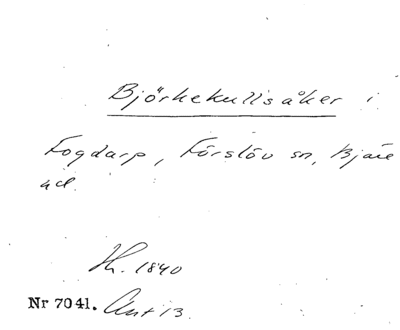 Björkekullsåker i
Fogdarp, Förslöv sn, Bjäre
hd.
H. 1840
Nr 7041.